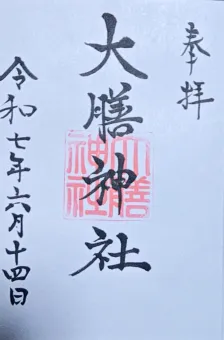 奉拝
大膳神社
令和七年六月十四日
大膳神社